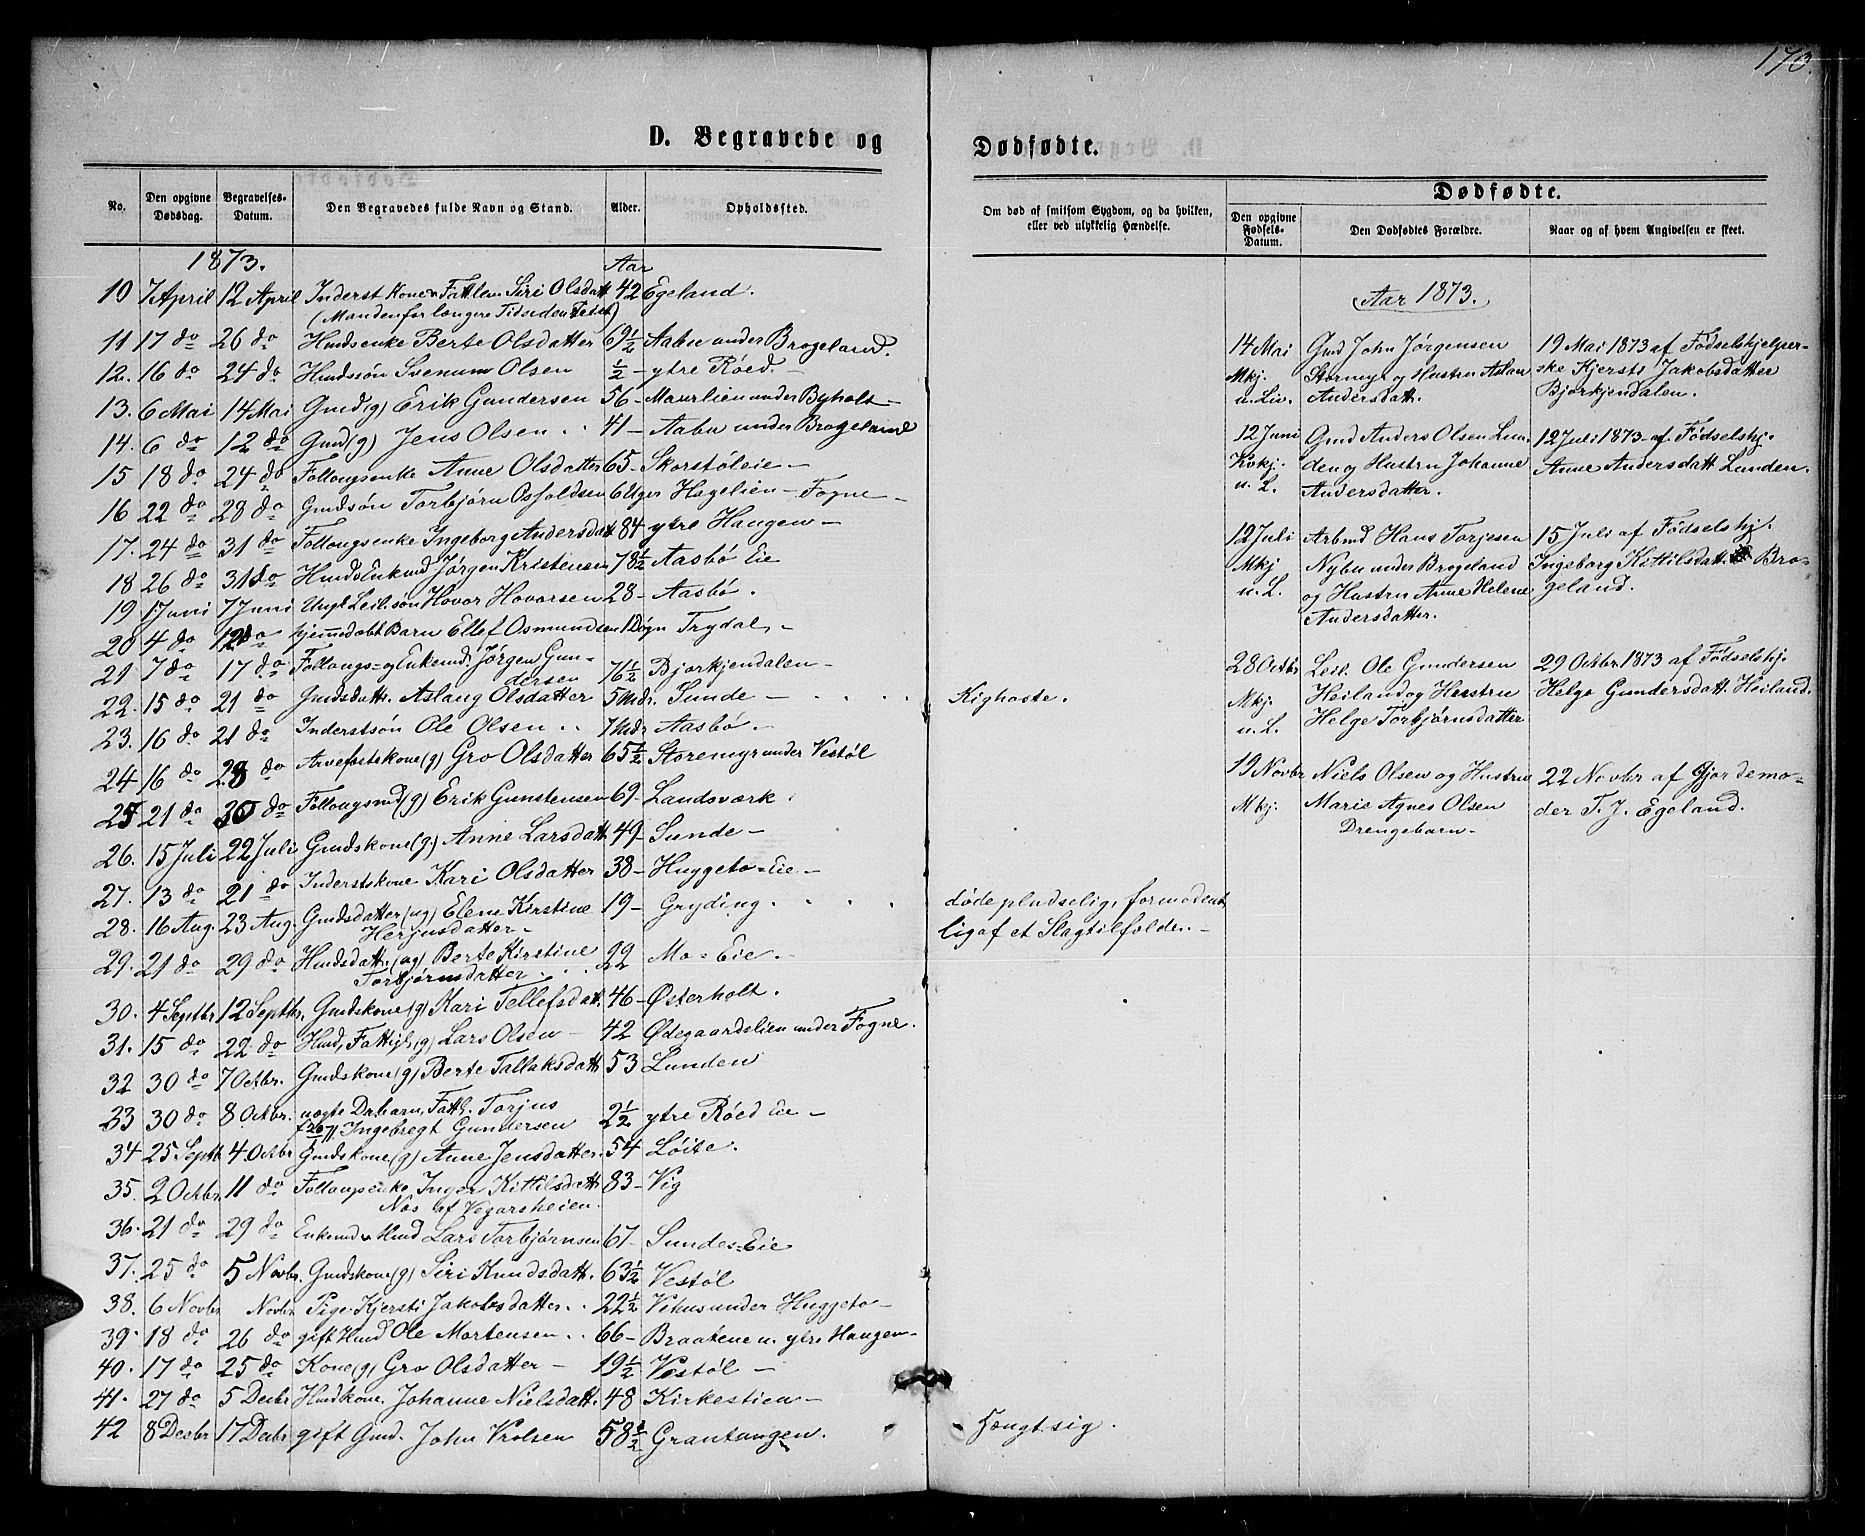 170.
D. Begravede og
Dødfødte.
No. | Den opgivne Dødsdag. | Begravelses-Datum. | Den Begravedes fulde Navn og Stand. | Alder. | Opholdssted.
1873. Aar
10 7 April 12 April Inderst Kone Fattlem Siri Olsdatt 42 Egeland.
(Manden for længere Tid siden
11 17 do 26 do Hmdsenke Berte Olsdatter 69½ Aabu under Brogeland.
12. 16 do 24 do Hmdssøn Svenum Olsen ½ - ytre Røed. -
13. 6 Mai 14 Mai Gmd (g) Erik Gundersen 56 - Maurlien under Byholt -
14. 6 do 12 do Gmd (g) Jens Olsen . . 41 - Aabu under Brogeland
15 18 do 24 do Follougsenke Anne Olsdatter 65 - Skorstøleie -
16 22 do 28 do Gmdssøn Torbjørn Osfoldsen 6 Uger Hagelien - Fogne -
17. 24 do 31 do Follougsenke Ingeborg Andersdatt 84 - ytre Haugen -
18 26 do 31 do Hmds Enkemd Jørgen Kristensen 78½ Aasbø Eie
19 1 Juni 7 Juni Ungk. Leil. søn Hovor Hovorsen 28 - Aasbø.
20 4 do 12 do hjemmedøbt Barn Ellef Osmundsen 1 Døgn Trydal, -
21 7 do 17 do Follougs= og Enkemd. Jørgen Gun-
dersen 76½ Bjorkjendalen -
22. 15 do 21 do Gmdsdatt. Aslaug Olsdatter 5 Mdr. Sunde - . . . Kighoste.
23. 16 do 21 do Inderstsøn Ole Olsen . . 7 Mdr Aasbø. -
24 16 do 28 do Arvefæstskone (g) Gro Olsdatter 65½ Storemyr under Vestøl
25 21 do 30 do Follougsmd (g) Erik Gunstensen 69 - Landsværk.
26. 15 Juli 22 Juli Gmdskone (g.) Anne Larsdatt 49 - Sunde -
27. 13 do 21 do Inderstskone Kari Olsdatter 38 - Huggeto=Eie -
28. 16 Aug. 23 Aug. Gmdsdatter (ug) Elene Kirstine 19 - Gryding. . . . døde pludselig, formodent-
Herjusdatter - lig af et Slagtilfælde. -
29. 21 do 29 do Hmdsdatt. (ug) Berte Kirstine 22 Mo=Eie. -
Torbjørnsdatter . .
30. 4 Septbr 12 Septbr. Gmdskone (g) Kari Tellefsdatt. 46 - Østerholt.
31. 15 do 22 do Hmd, Fattigl. (g) Lars Olsen - 42 Ødegaardslien under Fogne.
32 30 do 7 Octbr. Gmdskone (g) Berte Tallaksdatt 53 Lunden
33 30 do 8 Octbr. uægte Dr.barn, Fattl. Torjus 2½ ytre Røed Eie -
Ingebregt Gundersen
34 25 Septb 4. Octbr Gmdskone (g) Anne Jensdatter. 54 Løite.
35. 2 Octbr 11 do Follougsenke Inger Kittilsdatt 83 - Vig
Næs af Vegarsheien.
36. 21 do 29 do Enkemd Hmd Lars Torbjørnsen 67 - Sundes=Eie
37. 25 do 5 Novbr. Gmdskone (g) Siri Knudsdatt. 63½ Vestøl
38. 6 Novbr Novbr Pige. Kjersti Jakobsdatter . . 22½ Vehus under Huggeto -
39. 18 do 26 do gift Hmd Ole Mortensen . . 66 - Braatene u. ytre Haugen -
40. 17 do 25 do Kone (g) Gro Olsdatter - 19½ Vestøl -
41. 27 do 5 Decbr Hmdkone. Johanne Nielsdatt. 48 Kirkestien -
42 8 Decbr 17 Decbr gift Gmd. John Vrolsen 58½ Grantangen. - Hængt sig.
Om død af smitsom Sygdom, og da hvilken, eller ved ulykkelig Hændelse.
Dødfødte.
Den opgivne Fødsels-Datum. | Den Dødfødtes Forældre. | Naar og af hvem Angivelsen er skeet.
Aar 1873.
14 Mai Gmd John Jørgensen 19 Mai 1873 af Fødselshjelper-
Mkj. Stormyr og Hustru Aslau ske Kjersti Jakobsdatter
u. Liv. Andersdatt. Bjørkjendalen.
12 Juni Gmd Anders Olsen Lun- 12 Juli 1873 af Fødselshj.
Kvkj. den og Hustru Johanne Anne Andersdatt Lunden.
u. L. Andersdatter.
12 Juli Arbmd Hans Torjesen 15 Juli af Fødselshj.
Mkj Nybu under Brogeland Ingeborg Kittilsdatt. Bro-
u. L. og Hustru Anne Helene geland.
Andersdatter.
28 Octbr Leil. Ole Gundersen 29 Octbr. 1873 af Fødselshj.
Mkj. Heiland og Hustru Helge Gundersdatt. Heiland.
u. L. Helge Torbjørnsdatter
19 Novbr Niels Olsen og Hustru 22 Novbr af Gjordemo-
Mkj. Maris Agnes Olsen der T. J. Egeland.
Drengebarn -